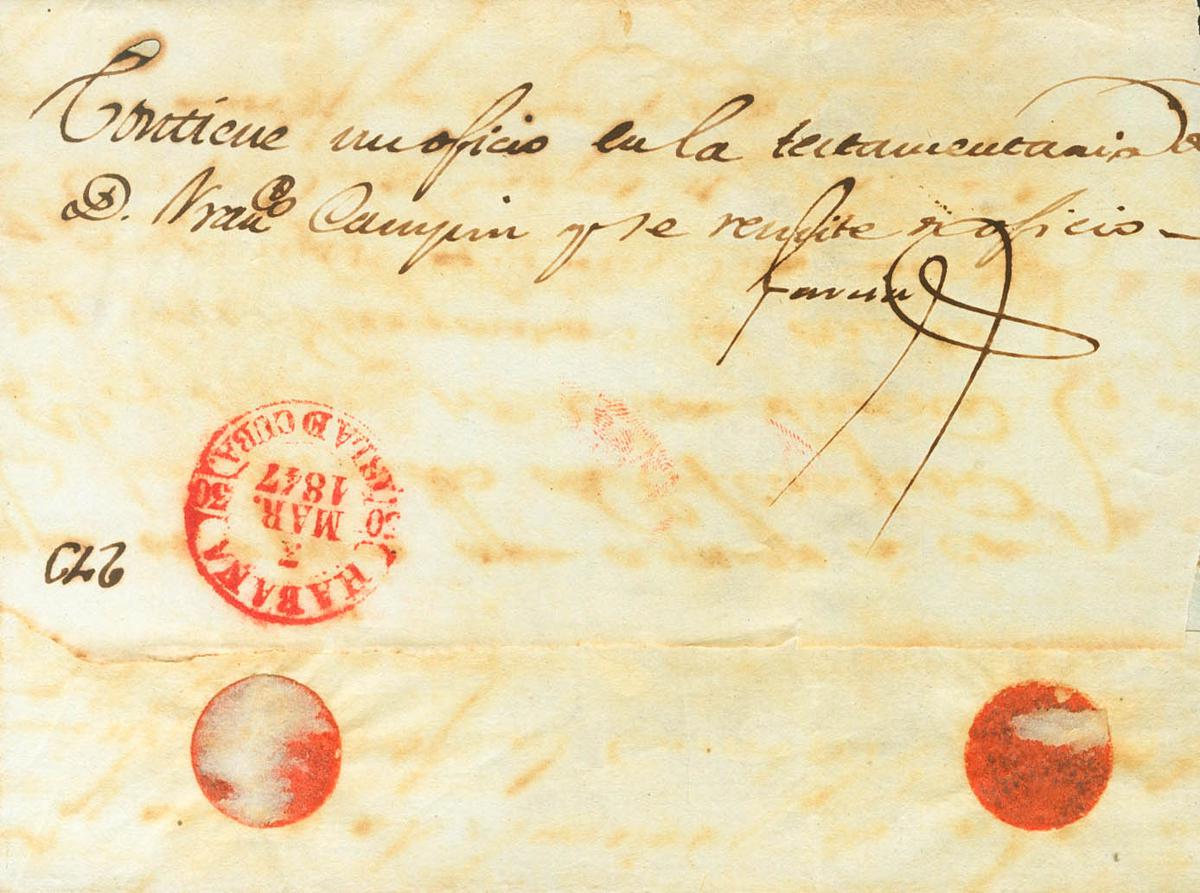 Contiene un oficio en la testamentaria de
D. Fran^co Campin q^e se remite de oficio
HABANA
ISLA D CUBA
3
MAR.
1847